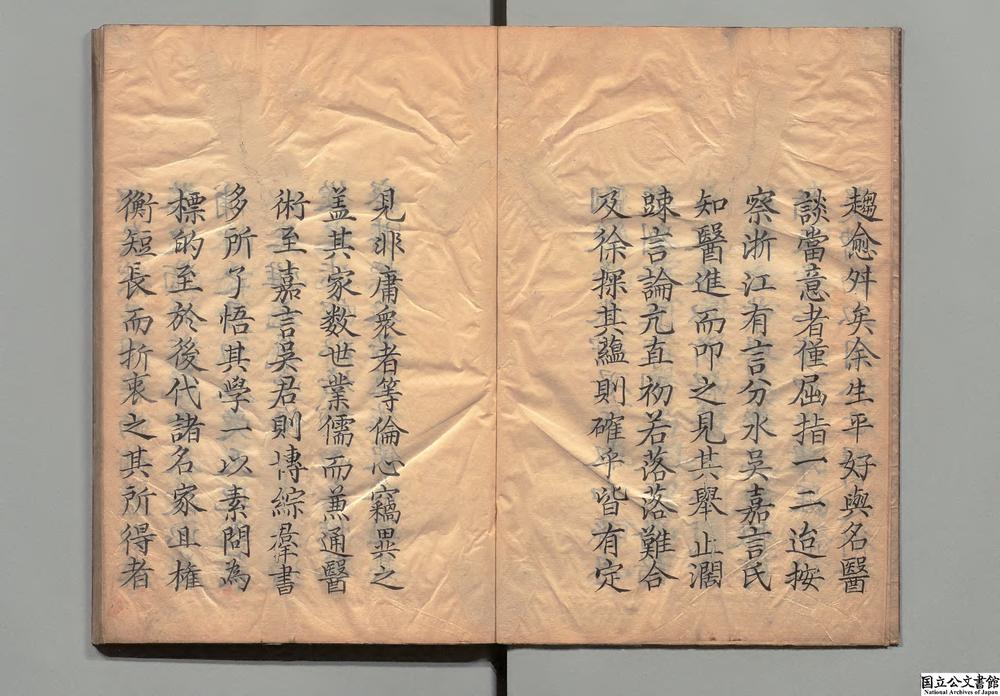 趨愈舛矣余生平好與名醫
談當意者僅屈指一二迨按
察浙江有言分水吳嘉言氏
知醫進而叩之見其舉止濶
踈言論亢直初若落落難合
及徐探其蘊則確乎皆有定
見非庸衆者等倫心竊異之
盖其家数世業儒而兼通醫
術至嘉言吳君則博綜羣書
多所了悟其學一以素問為
標的至於後代諸名家且權
衡短長而折衷之其所得者
国立公文書館
National Archives of Japan